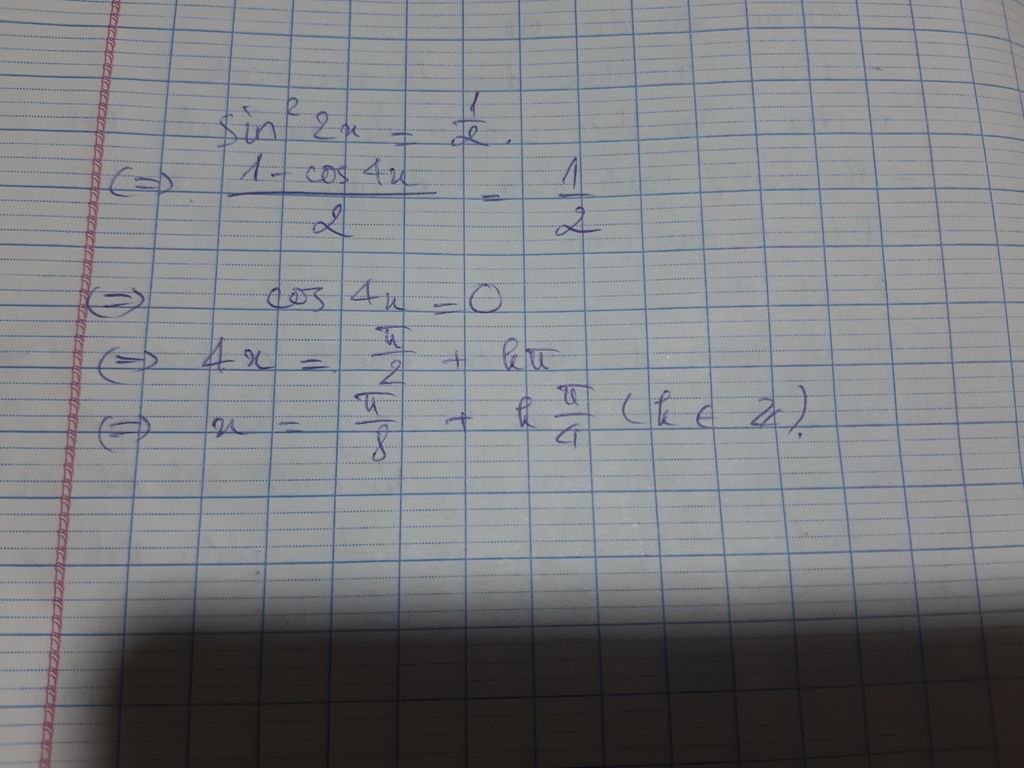 sin² 2x = 1/2.
(=) (1 - cos 4x)/2 = 1/2
(=) cos 4x = 0
(=) 4x = π/2 + kπ
(=) x = π/8 + k π/4 (k ∈ Z).